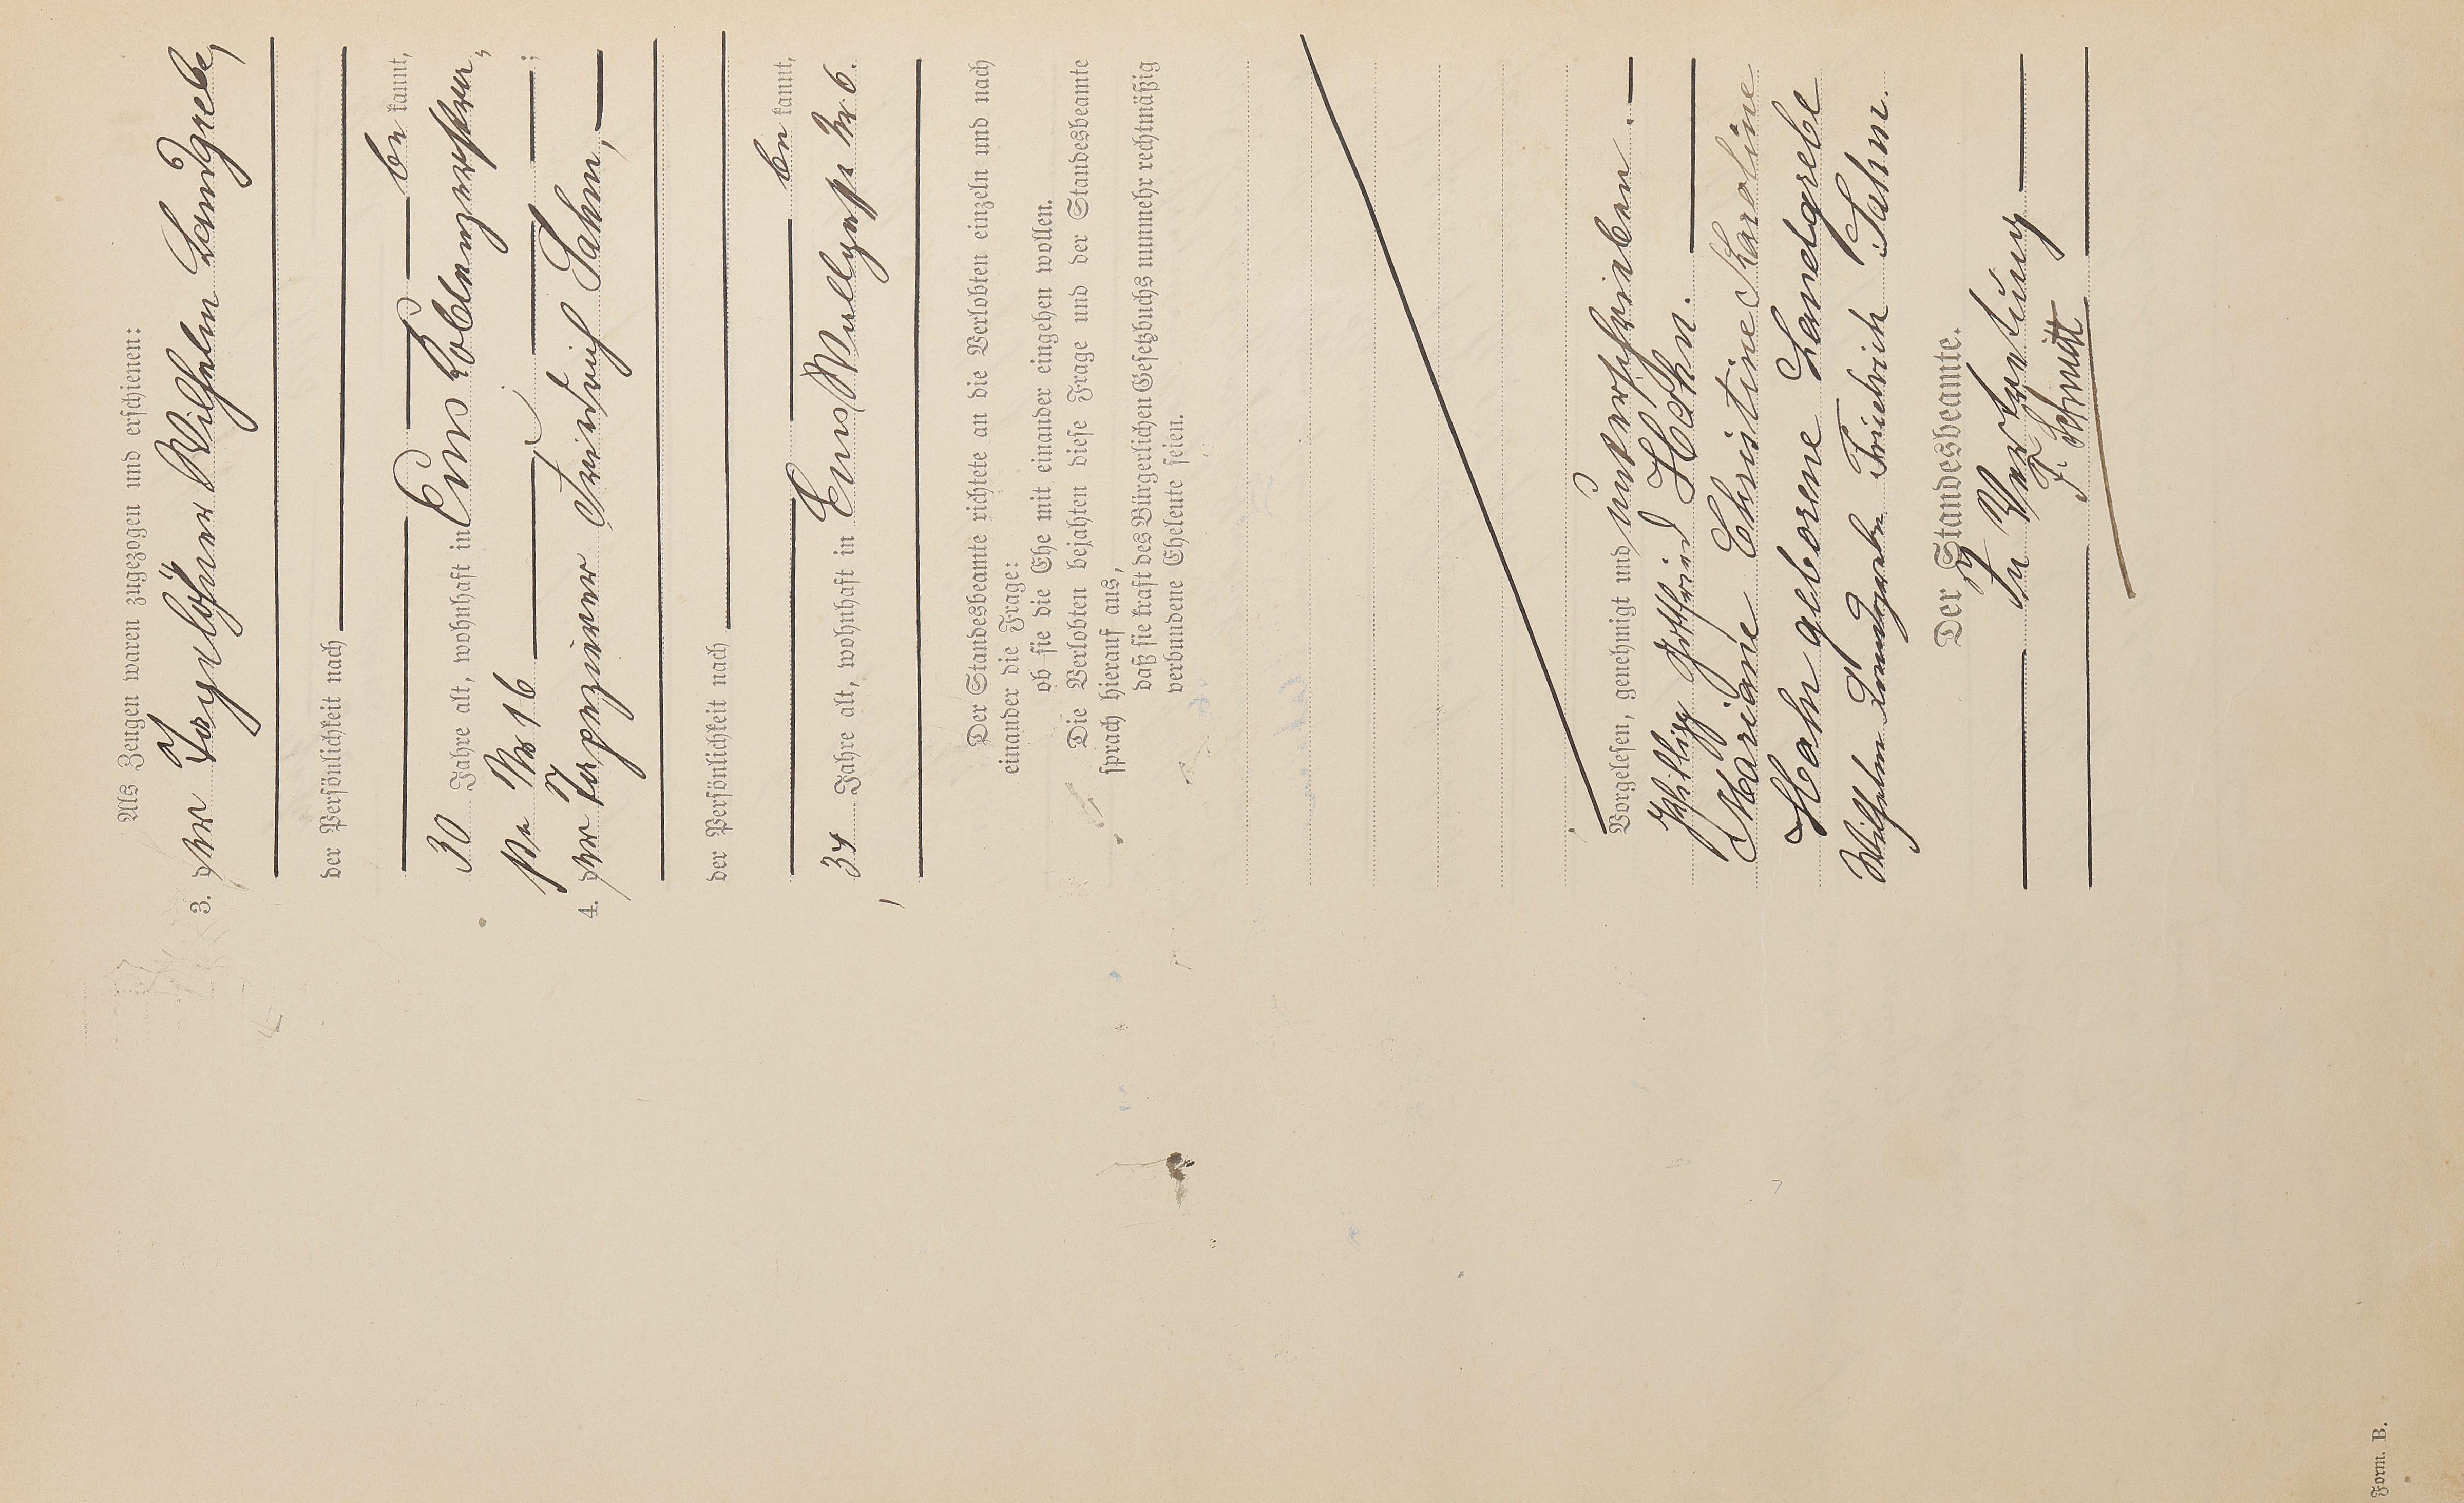 Als Zeugen waren zugezogen und erschienen:
3. der Tagelöhner Wilhelm Landgrebe,
der Persönlichkeit nach
be kannt,
30 Jahre alt, wohnhaft in Ems Coblenzerstra-
ße Nr. 16 ;
4. der Tapezierer Friedrich Sahm,
der Persönlichkeit nach
be kannt,
34 Jahre alt, wohnhaft in Ems, Nr. 6.
Der Standesbeamte richtete an die Verlobten einzeln und nach
einander die Frage:
ob sie die Ehe mit einander eingehen wollen.
Die Verlobten bejahten diese Frage und der Standesbeamte
sprach hierauf aus,
daß sie kraft des Bürgerlichen Gesetzbuchs nunmehr rechtmäßig
verbundene Eheleute seien.
Vorgelesen, genehmigt und unterschrieben.
Philipp Gottfried Hahn.
Mariane Christine Karoline
Hahn geborene Landgrebe
Wilhelm Landgrebe Friedrich Sahm.
Der Standesbeamte.
In Vertretung
F. Schmitt
Form. B.